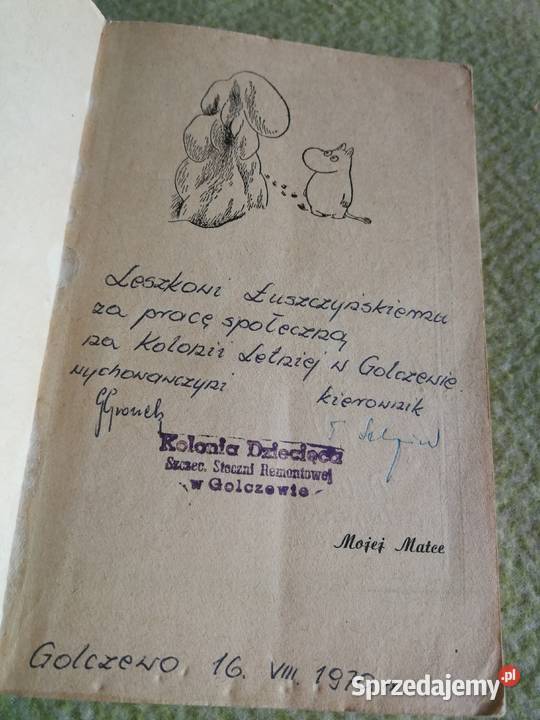 Leszkowi Łuszczyńskiemu
za pracę społeczną
na Kolonii Letniej w Golczewie.
wychowawczyni kierownik
Kolonia Dziecięca
Szczec. Stoczni Remontowej
w Golczewie
Mojej Matce
Golczewo 16. VIII.
Sprzedajemy.pl